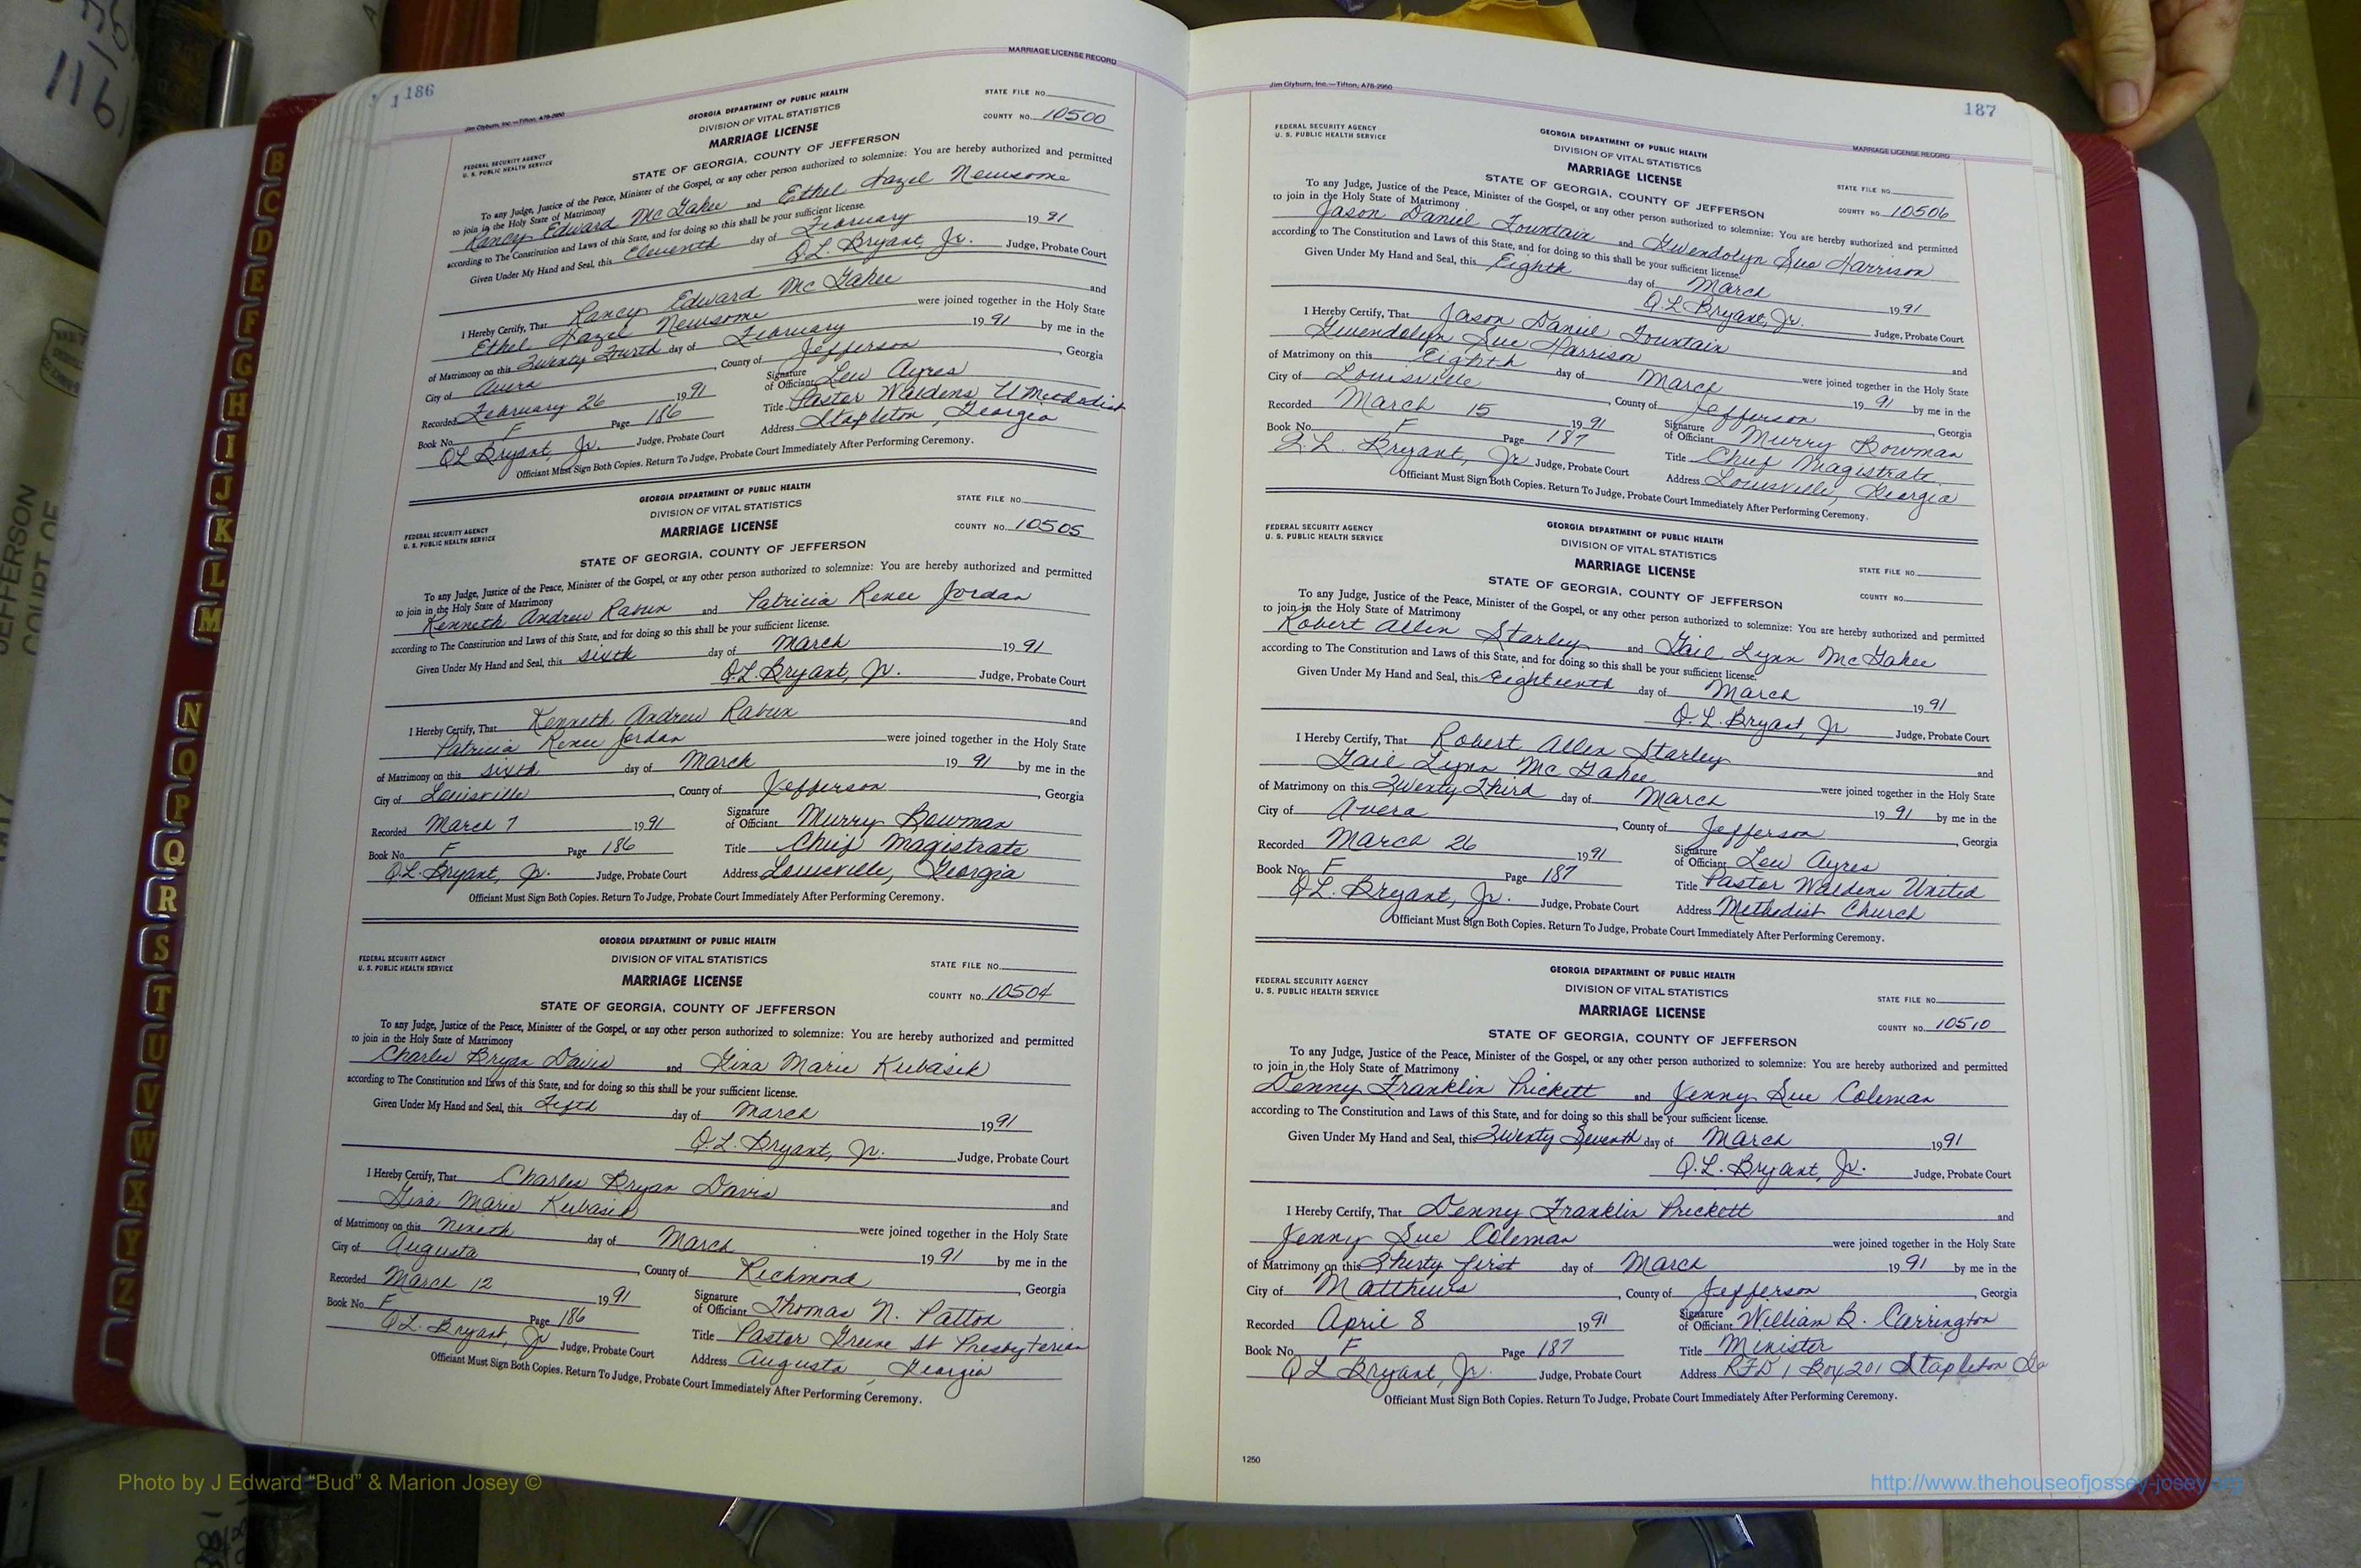 1161
JEFFERSON
COURT OF
B
C
D
E
F
G
H
I
J
K
L
M
N
O
P
Q
R
S
T
U
V
W
X
Y
Z
186
MARRIAGE LICENSE RECORD
Jim Clyburn, Inc.—Tifton, A78-2950
GEORGIA DEPARTMENT OF PUBLIC HEALTH
DIVISION OF VITAL STATISTICS
MARRIAGE LICENSE
STATE FILE NO.
COUNTY NO. 10500
FEDERAL SECURITY AGENCY
U. S. PUBLIC HEALTH SERVICE
STATE OF GEORGIA, COUNTY OF JEFFERSON
To any Judge, Justice of the Peace, Minister of the Gospel, or any other person authorized to solemnize: You are hereby authorized and permitted
to join in the Holy State of Matrimony
Rancy Edward McGahee and Ethel Hazel Newsome
according to The Constitution and Laws of this State, and for doing so this shall be your sufficient license.
Given Under My Hand and Seal, this Eleventh day of February 1991
Q.L. Bryant Jr. Judge, Probate Court
I Hereby Certify, That Rancy Edward McGahee and
Ethel Hazel Newsome were joined together in the Holy State
of Matrimony on this Twenty Fourth day of February 1991 by me in the
City of Avera, County of Jefferson, Georgia
Recorded February 26 1991 Signature of Officiant Lew Ayres
Book No. F Page 186 Title Pastor Waldens U Methodist
QL Bryant, Jr. Judge, Probate Court Address Stapleton, Georgia
Officiant Must Sign Both Copies. Return To Judge, Probate Court Immediately After Performing Ceremony.
GEORGIA DEPARTMENT OF PUBLIC HEALTH
DIVISION OF VITAL STATISTICS
MARRIAGE LICENSE
STATE FILE NO.
COUNTY NO. 10505
FEDERAL SECURITY AGENCY
U. S. PUBLIC HEALTH SERVICE
STATE OF GEORGIA, COUNTY OF JEFFERSON
To any Judge, Justice of the Peace, Minister of the Gospel, or any other person authorized to solemnize: You are hereby authorized and permitted
to join in the Holy State of Matrimony
Kenneth Andrew Rabun and Patricia Renee Jordan
according to The Constitution and Laws of this State, and for doing so this shall be your sufficient license.
Given Under My Hand and Seal, this sixth day of March 1991
Q.L. Bryant, Jr. Judge, Probate Court
I Hereby Certify, That Kenneth Andrew Rabun and
Patricia Renee Jordan were joined together in the Holy State
of Matrimony on this sixth day of March 1991 by me in the
City of Louisville, County of Jefferson, Georgia
Recorded March 7 1991 Signature of Officiant Murry Bowman
Book No. F Page 186 Title Chief Magistrate
Q.L. Bryant, Jr. Judge, Probate Court Address Louisville, Georgia
Officiant Must Sign Both Copies. Return To Judge, Probate Court Immediately After Performing Ceremony.
GEORGIA DEPARTMENT OF PUBLIC HEALTH
DIVISION OF VITAL STATISTICS
MARRIAGE LICENSE
STATE FILE NO.
COUNTY NO. 10504
FEDERAL SECURITY AGENCY
U. S. PUBLIC HEALTH SERVICE
STATE OF GEORGIA, COUNTY OF JEFFERSON
To any Judge, Justice of the Peace, Minister of the Gospel, or any other person authorized to solemnize: You are hereby authorized and permitted
to join in the Holy State of Matrimony
Charles Bryan Davis and Gina Marie Kubasik
according to The Constitution and Laws of this State, and for doing so this shall be your sufficient license.
Given Under My Hand and Seal, this Fifth day of March 1991
Q.L. Bryant, Jr. Judge, Probate Court
I Hereby Certify, That Charles Bryan Davis and
Gina Marie Kubasik were joined together in the Holy State
of Matrimony on this Nineth day of March 1991 by me in the
City of Augusta, County of Richmond, Georgia
Recorded March 12 1991 Signature of Officiant Thomas N. Patton
Book No. F Page 186 Title Pastor Greene St Presbyterian
Q.L. Bryant, Jr Judge, Probate Court Address Augusta, Georgia
Officiant Must Sign Both Copies. Return To Judge, Probate Court Immediately After Performing Ceremony.
187
Jim Clyburn, Inc.—Tifton, A78-2950
MARRIAGE LICENSE RECORD
FEDERAL SECURITY AGENCY
U. S. PUBLIC HEALTH SERVICE
GEORGIA DEPARTMENT OF PUBLIC HEALTH
DIVISION OF VITAL STATISTICS
MARRIAGE LICENSE
STATE FILE NO.
COUNTY NO. 10506
STATE OF GEORGIA, COUNTY OF JEFFERSON
To any Judge, Justice of the Peace, Minister of the Gospel, or any other person authorized to solemnize: You are hereby authorized and permitted
to join in the Holy State of Matrimony
Jason Daniel Fountain and Gwendolyn Sue Harrison
according to The Constitution and Laws of this State, and for doing so this shall be your sufficient license.
Given Under My Hand and Seal, this Eighth day of March 1991
Q.L Bryant, Jr. Judge, Probate Court
I Hereby Certify, That Jason Daniel Fountain and
Gwendolyn Sue Harrison were joined together in the Holy State
of Matrimony on this Eighth day of March 1991 by me in the
City of Louisville, County of Jefferson, Georgia
Recorded March 15 1991 Signature of Officiant Murry Bowman
Book No. F Page 187 Title Chief Magistrate
Q.L. Bryant, Jr Judge, Probate Court Address Louisville, Georgia
Officiant Must Sign Both Copies. Return To Judge, Probate Court Immediately After Performing Ceremony.
FEDERAL SECURITY AGENCY
U. S. PUBLIC HEALTH SERVICE
GEORGIA DEPARTMENT OF PUBLIC HEALTH
DIVISION OF VITAL STATISTICS
MARRIAGE LICENSE
STATE FILE NO.
COUNTY NO.
STATE OF GEORGIA, COUNTY OF JEFFERSON
To any Judge, Justice of the Peace, Minister of the Gospel, or any other person authorized to solemnize: You are hereby authorized and permitted
to join in the Holy State of Matrimony
Robert Allen Starley and Gail Lynn McGahee
according to The Constitution and Laws of this State, and for doing so this shall be your sufficient license.
Given Under My Hand and Seal, this Eighteenth day of March 1991
Q.L. Bryant, Jr Judge, Probate Court
I Hereby Certify, That Robert Allen Starley and
Gail Lynn McGahee were joined together in the Holy State
of Matrimony on this Twenty Third day of March 1991 by me in the
City of Avera, County of Jefferson, Georgia
Recorded March 26 1991 Signature of Officiant Lew Ayres
Book No. F Page 187 Title Pastor Waldens United
Q.L. Bryant, Jr. Judge, Probate Court Address Methodist Church
Officiant Must Sign Both Copies. Return To Judge, Probate Court Immediately After Performing Ceremony.
FEDERAL SECURITY AGENCY
U. S. PUBLIC HEALTH SERVICE
GEORGIA DEPARTMENT OF PUBLIC HEALTH
DIVISION OF VITAL STATISTICS
MARRIAGE LICENSE
STATE FILE NO.
COUNTY NO. 10510
STATE OF GEORGIA, COUNTY OF JEFFERSON
To any Judge, Justice of the Peace, Minister of the Gospel, or any other person authorized to solemnize: You are hereby authorized and permitted
to join in the Holy State of Matrimony
Denny Franklin Prickett and Jenny Sue Coleman
according to The Constitution and Laws of this State, and for doing so this shall be your sufficient license.
Given Under My Hand and Seal, this Twenty Seventh day of March 1991
Q.L. Bryant, Jr. Judge, Probate Court
I Hereby Certify, That Denny Franklin Prickett and
Jenny Sue Coleman were joined together in the Holy State
of Matrimony on this Thirty First day of March 1991 by me in the
City of Matthews, County of Jefferson, Georgia
Recorded April 8 1991 Signature of Officiant William B. Carrington
Book No. F Page 187 Title Minister
QL Bryant, Jr. Judge, Probate Court Address RFD 1 Box 201 Stapleton Ga
Officiant Must Sign Both Copies. Return To Judge, Probate Court Immediately After Performing Ceremony.
1250
Photo by J Edward “Bud” & Marion Josey ©
http://www.thehouseofjossey-josey.org